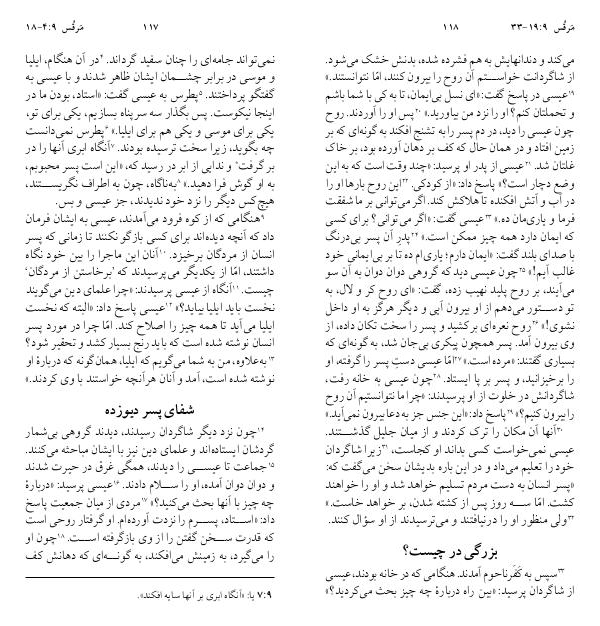 مَرقُس ۹:‏۴-۱۸
۱۱۷
نمی‌تواند جامه‌ای را چنان سفید گرداند. ۴در آن هنگام، ایلیا
و موسی در برابر چشمان ایشان ظاهر شدند و با عیسی به
گفتگو پرداختند. ۵پطرس به عیسی گفت: «استاد، بودن ما در
اینجا نیکوست. پس بگذار سه سرپناه بسازیم، یکی برای تو،
یکی برای موسی و یکی هم برای ایلیا.» ۶پطرس نمی‌دانست
چه بگوید، زیرا سخت ترسیده بودند. ۷آنگاه ابری آنها را در
بر گرفت* و ندایی از ابر در رسید که، «این است پسر محبوبم،
به او گوش فرا دهید.» ۸به‌ناگاه، چون به اطراف نگریستند،
هیچ‌کس دیگر را نزد خود ندیدند، جز عیسی و بس.
۹هنگامی که از کوه فرود می‌آمدند، عیسی به ایشان فرمان
داد که آنچه دیده‌اند برای کسی بازگو نکنند تا زمانی که پسر
انسان از مردگان برخیزد. ۱۰آنان این ماجرا را بین خود نگاه
داشتند، امّا از یکدیگر می‌پرسیدند که «برخاستن از مردگان»
چیست. ۱۱آنگاه از عیسی پرسیدند: «چرا علمای دین می‌گویند
نخست باید ایلیا بیاید؟» ۱۲عیسی پاسخ داد: «البته که نخست
ایلیا می‌آید تا همه چیز را اصلاح کند. امّا چرا در مورد پسر
انسان نوشته شده است که باید رنج بسیار کشد و تحقیر شود؟
۱۳به‌علاوه، من به شما می‌گویم که ایلیا، همان‌گونه که دربارهٔ او
نوشته شده است، آمد و آنان هرآنچه خواستند با وی کردند.»
شفای پسر دیوزده
۱۴چون نزد دیگر شاگردان رسیدند، دیدند گروهی بی‌شمار
گردشان ایستاده‌اند و علمای دین نیز با ایشان مباحثه می‌کنند.
۱۵جماعت تا عیسی را دیدند، همگی غرق در حیرت شدند
و دوان دوان آمده، او را سلام دادند. ۱۶عیسی پرسید: «دربارهٔ
چه چیز با آنها بحث می‌کنید؟» ۱۷مردی از میان جمعیت پاسخ
داد: «استاد، پسرم را نزدت آورده‌ام. او گرفتار روحی است
که قدرت سخن گفتن را از وی بازگرفته است. ۱۸چون او
را می‌گیرد، به زمینش می‌افکند، به گونه‌ای که دهانش کف
۹:‏۷ یا: «آنگاه ابری بر آنها سایه افکند».
۱۱۸
مَرقُس ۹:‏۱۹-۳۳
می‌کند و دندانهایش به هم فشرده شده، بدنش خشک می‌شود.
از شاگردانت خواستم آن روح را بیرون کنند، امّا نتوانستند.»
۱۹عیسی در پاسخ گفت: «ای نسل بی‌ایمان، تا به کی با شما باشم
و تحملتان کنم؟ او را نزد من بیاورید.» ۲۰پس او را آوردند. روح
چون عیسی را دید، در دم پسر را به تشنج افکند به گونه‌ای که بر
زمین افتاد و در همان حال که کف بر دهان آورده بود، بر خاک
غلتان شد. ۲۱عیسی از پدر او پرسید: «چند وقت است که به این
وضع دچار است؟» پاسخ داد: «از کودکی. ۲۲این روح بارها او را
در آب و آتش افکنده تا هلاکش کند. اگر می‌توانی بر ما شفقت
فرما و یاری‌مان ده.» ۲۳عیسی گفت: «اگر می‌توانی؟ برای کسی
که ایمان دارد همه چیز ممکن است.» ۲۴پدرِ آن پسر بی‌درنگ
با صدای بلند گفت: «ایمان دارم؛ یاری‌ام ده تا بر بی‌ایمانی خود
غالب آیم!» ۲۵چون عیسی دید که گروهی دوان دوان به آن سو
می‌آیند، بر روح پلید نهیب زده، گفت: «ای روح کر و لال، به
تو دستور می‌دهم از او بیرون آیی و دیگر هرگز به او داخل
نشوی!» ۲۶روح نعره‌ای برکشید و پسر را سخت تکان داده، از
وی بیرون آمد. پسر همچون پیکری بی‌جان شد، به گونه‌ای که
بسیاری گفتند: «مرده است.» ۲۷امّا عیسی دستِ پسر را گرفته، او
را برخیزانید، و پسر بر پا ایستاد. ۲۸چون عیسی به خانه رفت،
شاگردانش در خلوت از او پرسیدند: «چرا ما نتوانستیم آن روح
را بیرون کنیم؟» ۲۹پاسخ داد: «این جنس جز به دعا بیرون نمی‌آید.»
۳۰آنها آن مکان را ترک کردند و از میان جلیل گذشتند.
عیسی نمی‌خواست کسی بداند او کجاست، ۳۱زیرا شاگردان
خود را تعلیم می‌داد و در این باره بدیشان سخن می‌گفت که:
«پسر انسان به دست مردم تسلیم خواهد شد و او را خواهند
کشت. امّا سه روز پس از کشته شدن، بر خواهد خاست.»
۳۲ولی منظور او را درنیافتند و می‌ترسیدند از او سؤال کنند.
بزرگی در چیست؟
۳۳سپس به کَفَرناحوم آمدند. هنگامی که در خانه بودند، عیسی
از شاگردان پرسید: «بین راه دربارهٔ چه چیز بحث می‌کردید؟»